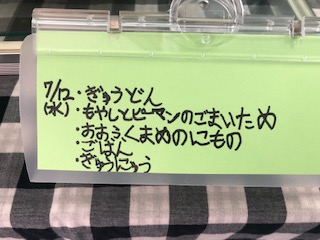 7/12・ぎゅうどん
(水)・もやしとピーマンのごまいため
・おおふくまめのにもの
・ごはん
・ぎゅうにゅう